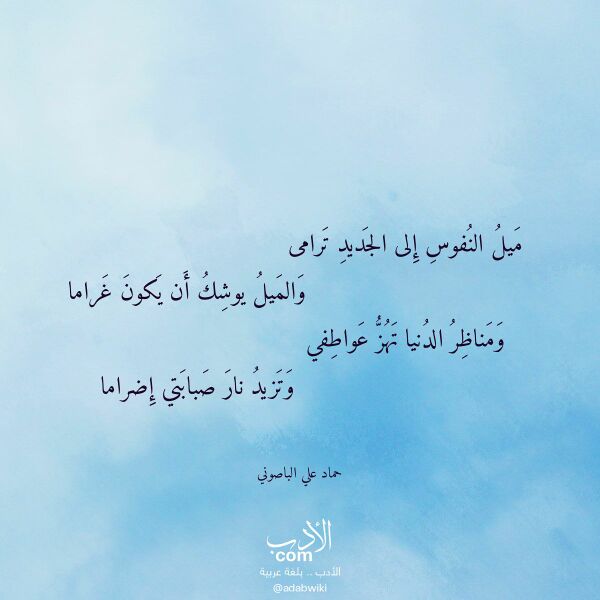 مَيلُ النُفوسِ إِلى الجَديدِ تَرامى
وَالمَيلُ يوشِكُ أَن يَكونَ غَراما
وَمَناظِرُ الدُنيا تَهُزُّ عَواطِفي
وَتَزيدُ نارَ صَبابَتي إِضراما
حماد علي الباصوني
الأدب
com
الأدب .. بلغة عربية
@adabwiki